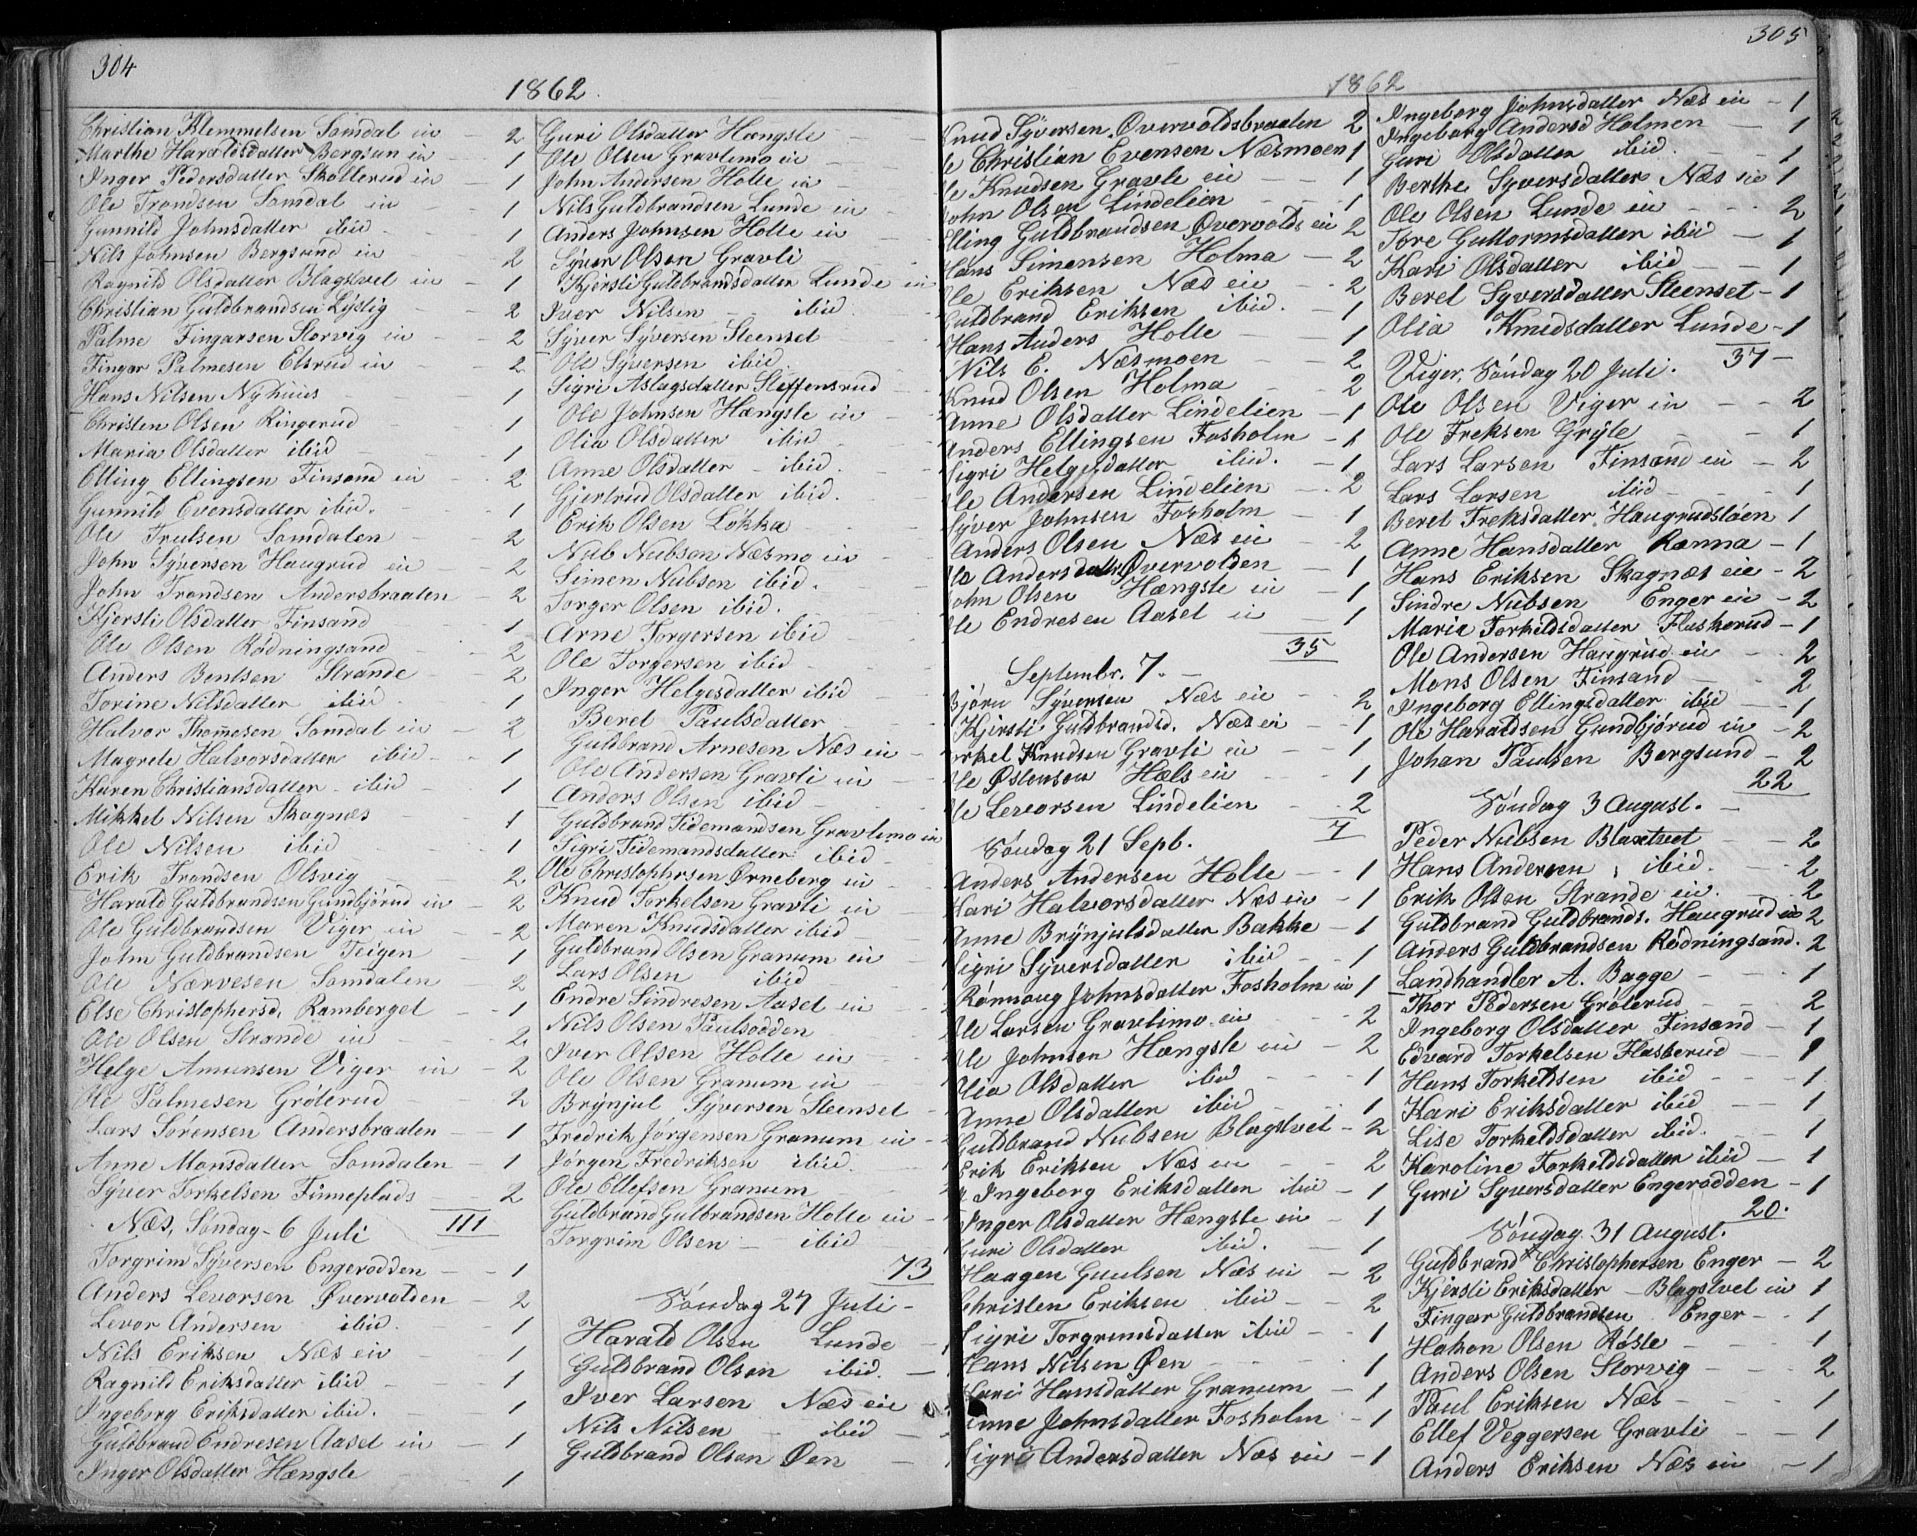 304
1862.
Christian Klemmetsen Somdal ie — 2
Marthe Haraldsdatter Bergsun ie — 1
Inger Pedersdatter Skollerud ie — 1
Ole Trondsen Somdal ie — 1
Gunnild Johnsdatter ibid — 1
Nils Johnsen Bergsund ie — 2
Ragnild Olsdatter Blagstvet ie — 1
Christian Guldbrandsen Lystig — 2
Palme Fingarsen Storvig ie — 2
Fingar Palmesen Elsrud ie — 2
Hans Nilsen Nyhuus — 1
Christen Olsen Ringerud — 1
Maria Olsdatter ibid — 1
Elling Ellingsen Finsand ie — 2
Gunnild Evensdatter ibid. — 1
Ole Trulsen Somdalen — 2
John Syversen Haugrud ei — 2
John Trondsen Andersbraaten — 2
Kjersti Olsdatter Finsand — 1
Ole Olsen Rödningsand — 2
Anders Bentsen Strande — 2
Torine Nilsdatter ibid — 1
Halvor Thomesen Somdal ie — 2
Magrete Halvorsdatter ibid — 1
Karen Christiansdatter ibid — 1
Mikkel Nilsen Skagnæs — 1
Ole Nilsen ibid — 1
Erik Trondsen Olsvig — 2
Harald Guldbrandsen Gunbjörud ie — 2
Ole Guldbrandsen Viger ie — 2
John Guldbrandsen Teigen — 1
Ole Nærvesen Somdalen — 2
Else Christophersd. Ramberget — 1
Ole Olsen Strande ie — 2
Helge Amunsen Viger ie — 2
Ole Palmesen Gröterud — 2
Lars Sörensen Andersbraaten — 1
Anne Monsdatter Somdalen — 1
Syver Torkelsen Finneplads — 2
Næs, Söndag 6 Juli 111
Torgrim Syversen Engerodden — 1
Anders Levorsen Øvervolden — 2
Levor Andersen ibid. — 1
Nils Eriksen Næs eie — 1
Ragnild Eriksdatter ibid — 1
Ingeborg Eriksdatter ibid. — 1
Guldbrand Endresen Aaset ie — 1
Inger Olsdatter Hængsle — 1
Guri Olsdatter Hængsle
Ole Olsen Gravlimo ie
John Andersen Holte ie
Nils Guldbrandsen Lunde ie
Anders Johnsen Holte ie
Syver Olsen Gravli
Kjersti Guldbrandsdatter Lunde ie
Iver Nilsen ibid.
Syver Syversen Steenset
Ole Syversen ibid.
Sigri Aslagsdatter Steffensrud
Ole Johnsen Hængsle ie
Olia Olsdatter ibid
Anne Olsdatter — ibid.
Gjertrud Olsdatter ibid.
Erik Olsen Løkka
Nub Nubsen Næsmo ie
Simen Nubsen ibid.
Torger Olsen ibid.
Arne Torgersen ibid
Ole Torgersen ibid
Inger Helgesdatter ibid
Beret Paulsdatter
Guldbrand Arnesen Næs ei
Ole Andersen Gravli ie
Anders Olsen ibid
Guldbrand Tidemandsen Gravlimo ie
Sigri Tidemandsdatter ibid
Ole Christophersen Ørneberg ie
Knud Torkelsen Gravli ie
Maren Knudsdatter ibid
Guldbrand Olsen Granum ei
Lars Olsen ibid
Endre Sindresen Aaset ei
Nils Olsen Paulsodden
Iver Olsen Holte ie
Ole Olsen Granum ie
Brynjul Syversen Steenset
Fredrik Jørgensen Granum ei
Jørgen Fredriksen ibid.
Ole Ellefsen Granum
Guldbrand Gulbrandsen Holte ei
Torgrim Olsen — ibid
73
Söndag 27 Juli
Harald Olsen Lunde
Guldbrand Olsen ibid.
Iver Larsen Næs eie
Nils Nilsen ibid
Guldbrand Olsen Øen
305
1862
Knud Syversen Øvervoldsbraaten 2
Ole Christian Evensen Næsmoen 1
Ole Knudsen Gravli eie — 1
John Olsen Lindelien — 1
Elling Guldbrandsen Øvervolds ei 2
Hans Simensen Holma — 2
Ole Eriksen Næs eie — 2
Guldbrand Eriksen ibid. — 1
Hans Anders Holte — 1
Nils E. Næsmoen — 2
Knud Olsen Holma — 2
Anne Olsdatter Lindelien — 1
Anders Ellingsen Fosholm — 1
Sigri Helgesdatter ibid. — 1
Ole Andersen Lindelien — 2
Syver Johnsen Fosholm — 1
Anders Olsen Næs eie — 2
Øvervolden — 1
John Olsen Hængsle ie — 1
Ole Endresen Aaset ie — 1
35
Septembr. 7.
Bjørn Syversen Næs eie — 2
Kjersti Guldbrandsd. Næs ei — 1
Torkel Knudsen Gravli ei — 1
Ole Østensen Hæls ei — 1
Ole Levorsen Lindelien — 2
7
Söndag 21 Sepb.
Anders Andersen Holte — 1
Kari Halvorsdatter Næs ei — 1
Anne Brynjulsdatter Bakke — 1
Sigri Syversdatter ibid — 1
Rönnaug Johnsdatter Fosholm ei 1
Ole Larsen Gravlimo ei — 2
Ole Johnsen Hængsle ie — 2
Olia Olsdatter ibid — 1
Anne Olsdatter ibid — 1
Guldbrand Nubsen Blagstvet — 2
Erik Eriksen Næs ei — 2
Ingeborg Eriksdatter ibid — 1
Inger Olsdatter Hængsle ei — 1
Guri Olsdatter ibid. — 1
Haagen Guulsen Næs ei — 2
Christen Eriksen ibid — 2
Sigri Torgrimsdatter ibid — 1
Hans Nilsen Øen — 1
Kari Hansdatter Granum — 1
Anne Johnsdatter Fosholm — 1
Sigri Andersdatter Næs ei — 1
Ingeborg Johnsdatter Næs ei — 1
Ingeborg Andersd Holmen — 1
Guri Olsdatter ibid. — 1
Berthe Syversdatter Næs ei 1
Ole Olsen Lunde ei — 2
Tore Guttormsdatter ibid — 1
Kari Olsdatter ibid — 1
Beret Syversdatter Steenset — 1
Olia Knudsdatter Lunde — 1
37
Viger, Söndag 20 Juli.
Ole Olsen Viger ie — 2
Ole Freksen Gryte — 1
Lars Larsen Finsand ei — 2
Lars Larsen ibid — 1
Beret Freksdatter Haugrudsløen 1
Anne Hansdatter Rønna — 1
Hans Eriksen Skagnæs eie — 2
Sindre Nubsen Enger ei — 2
Maria Torkildsdatter Flaskerud — 1
Ole Andersen Haugrud ei — 2
Mons Olsen Finsand — 2
Ingeborg Ellingsdatter ibid — 1
Ole Haraldsen Gundbjörud ie — 2
Johan Paulsen Bergsund — 2
22
Söndag 3 August.
Peder Nubsen Blaxtvet — 2
Hans Andersen ibid. — 2
Erik Olsen Strande ei — 2
Guldbrand Guldbrands. Haugrud ie 2
Anders Guldbrandsen Rödningsand. 2
Landhandler A. Bagge — 1
Thor Pedersen Gröterud — 2
Ingeborg Olsdatter Finsand — 1
Edvard Torkelsen Flasberud — 1
Hans Torkeldsen ibid — 1
Kari Eriksdatter ibid — 1
Lise Torkeldsdatter ibid. — 1
Karoline Torkeldsdatter ibid — 1
Guri Syversdatter Engerodden — 1
20.
Söndag 31 August.
Guldbrand Christophersen Enger — 2
Kjersti Eriksdatter Blagstvet ie 1
Fingar Guldbrandsen Enger — 1
Hakon Olsen Røste — 1
Anders Olsen Storvig — 2
Paul Eriksen Næs — 1
Ellef Veggersen Gravli — 1
Anders Eriksen Næs ei — 1